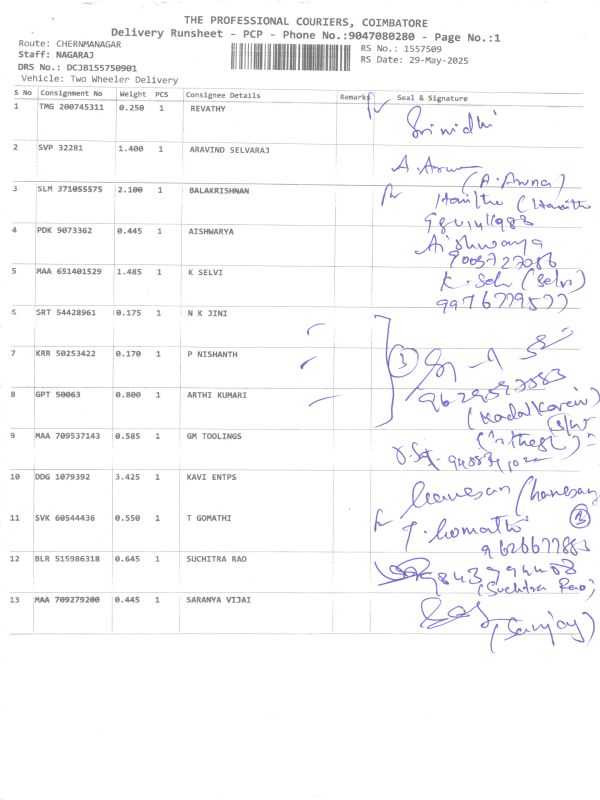 THE PROFESSIONAL COURIERS, COIMBATORE
Delivery Runsheet - PCP - Phone No.:9047080280 - Page No.:1
Route: CHERNMANAGAR
Staff: NAGARAJ
DRS No.: DCJB155750901
Vehicle: Two Wheeler Delivery
RS No.: 1557509
RS Date: 29-May-2025
S No Consignment No Weight PCS Consignee Details Remarks Seal & Signature
1 TMG 200745311 0.250 1 REVATHY Srinidhi
2 SVP 32281 1.400 1 ARAVIND SELVARAJ
3 SLM 371055575 2.100 1 BALAKRISHNAN
4 PDK 9073362 0.445 1 AISHWARYA Aishwarya
5 MAA 651401529 1.485 1 K SELVI (Selvi)
6 SRT 54428961 0.175 1 N K JINI
7 KRR 50253422 0.170 1 P NISHANTH 3
8 GPT 50063 0.800 1 ARTHI KUMARI
9 MAA 709537143 0.585 1 GM TOOLINGS
10 DDG 1079392 3.425 1 KAVI ENTPS
11 SVK 60544436 0.550 1 T GOMATHI
12 BLR 515986318 0.645 1 SUCHITRA RAO (Suchitra Rao)
13 MAA 709279200 0.445 1 SARANYA VIJAI (Sanjay)